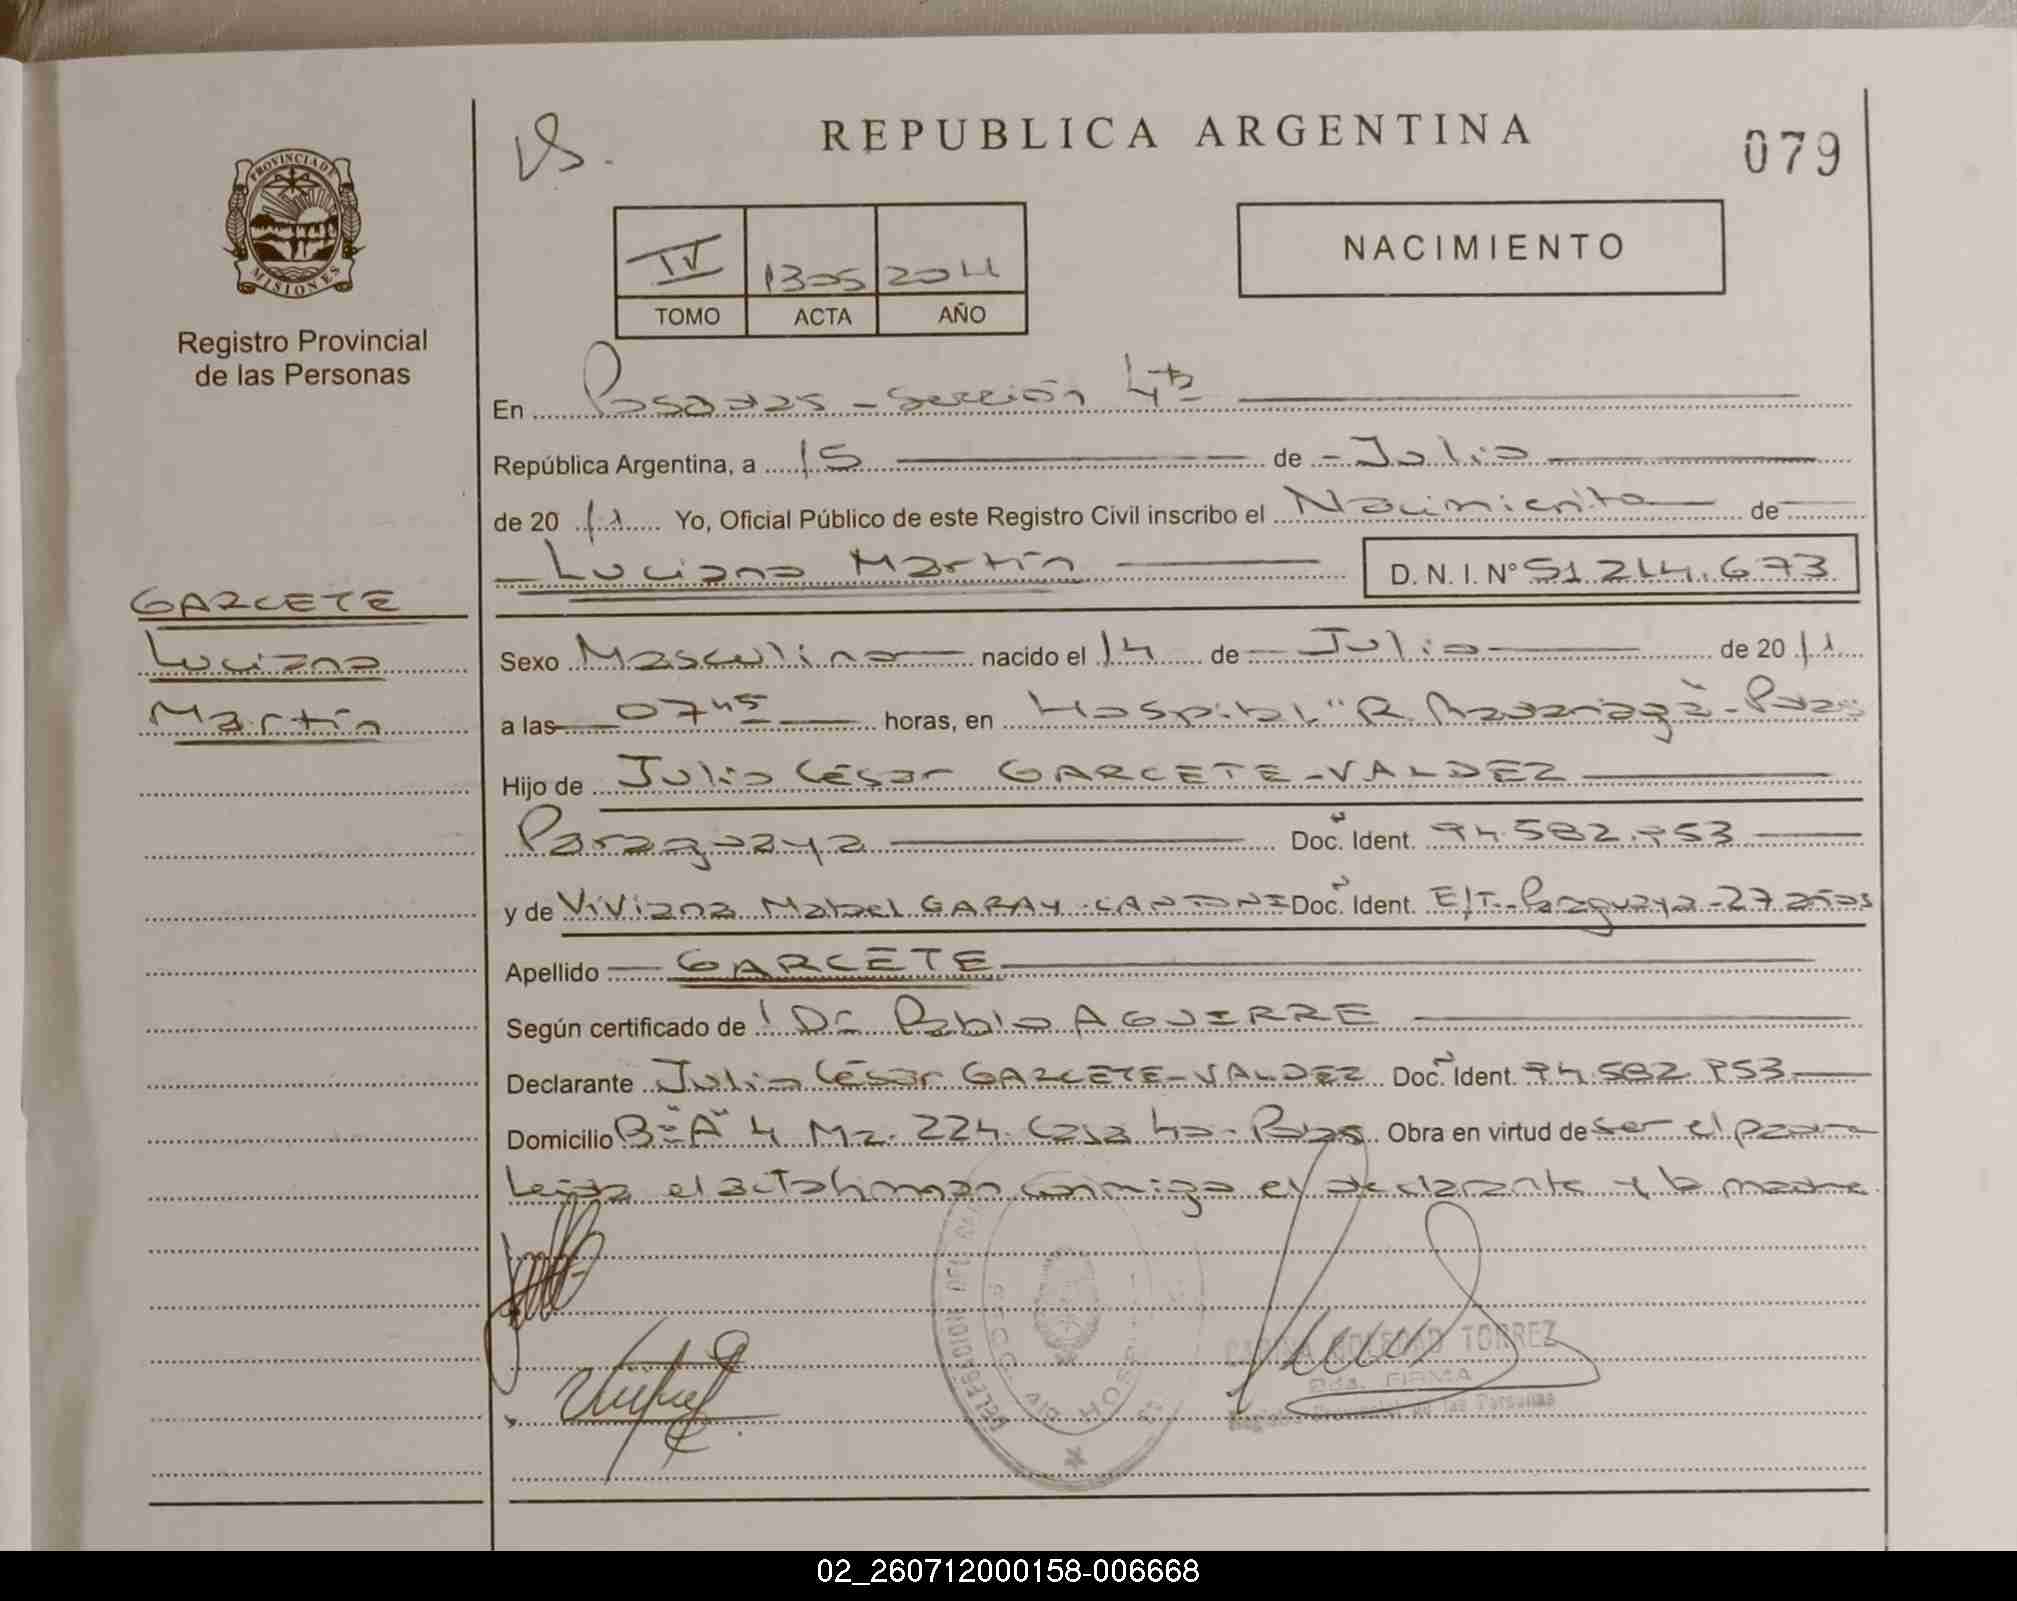 REPUBLICA ARGENTINA
079
PROVINCIA DE
MISIONES
Registro Provincial
de las Personas
IV 1305 2011
TOMO ACTA AÑO
NACIMIENTO
En Posadas - Sección 4ta
República Argentina, a 15 de - Julio
de 20 11 Yo, Oficial Público de este Registro Civil inscribo el Nacimiento de
Luciano Martín D. N. I. N° 51.214.673
GARCETE
Luciano
Martín
Sexo Masculino nacido el 14 de Julio de 20 11
a las 07 45 horas, en Hospital "R. Madariaga" - Pdas
Hijo de Julio César GARCETE-VALDEZ
Paraguaya Doc. Ident. 94.582.953
y de Viviana Mabel GARAY Doc. Ident. E/T - Paraguaya - 27 años
Apellido GARCETE
Según certificado de Dr Pablo AGUIRRE
Declarante Julio César GARCETE-VALDEZ Doc. Ident. 94.582.953
Domicilio B° "A" 4 Mz. 224. Casa Pdas Obra en virtud de ser el padre
Leída el acta firman conmigo el declarante y la madre
SOLEDAD TORREZ
FIRMA
Registro Provincial de las Personas
02_260712000158-006668